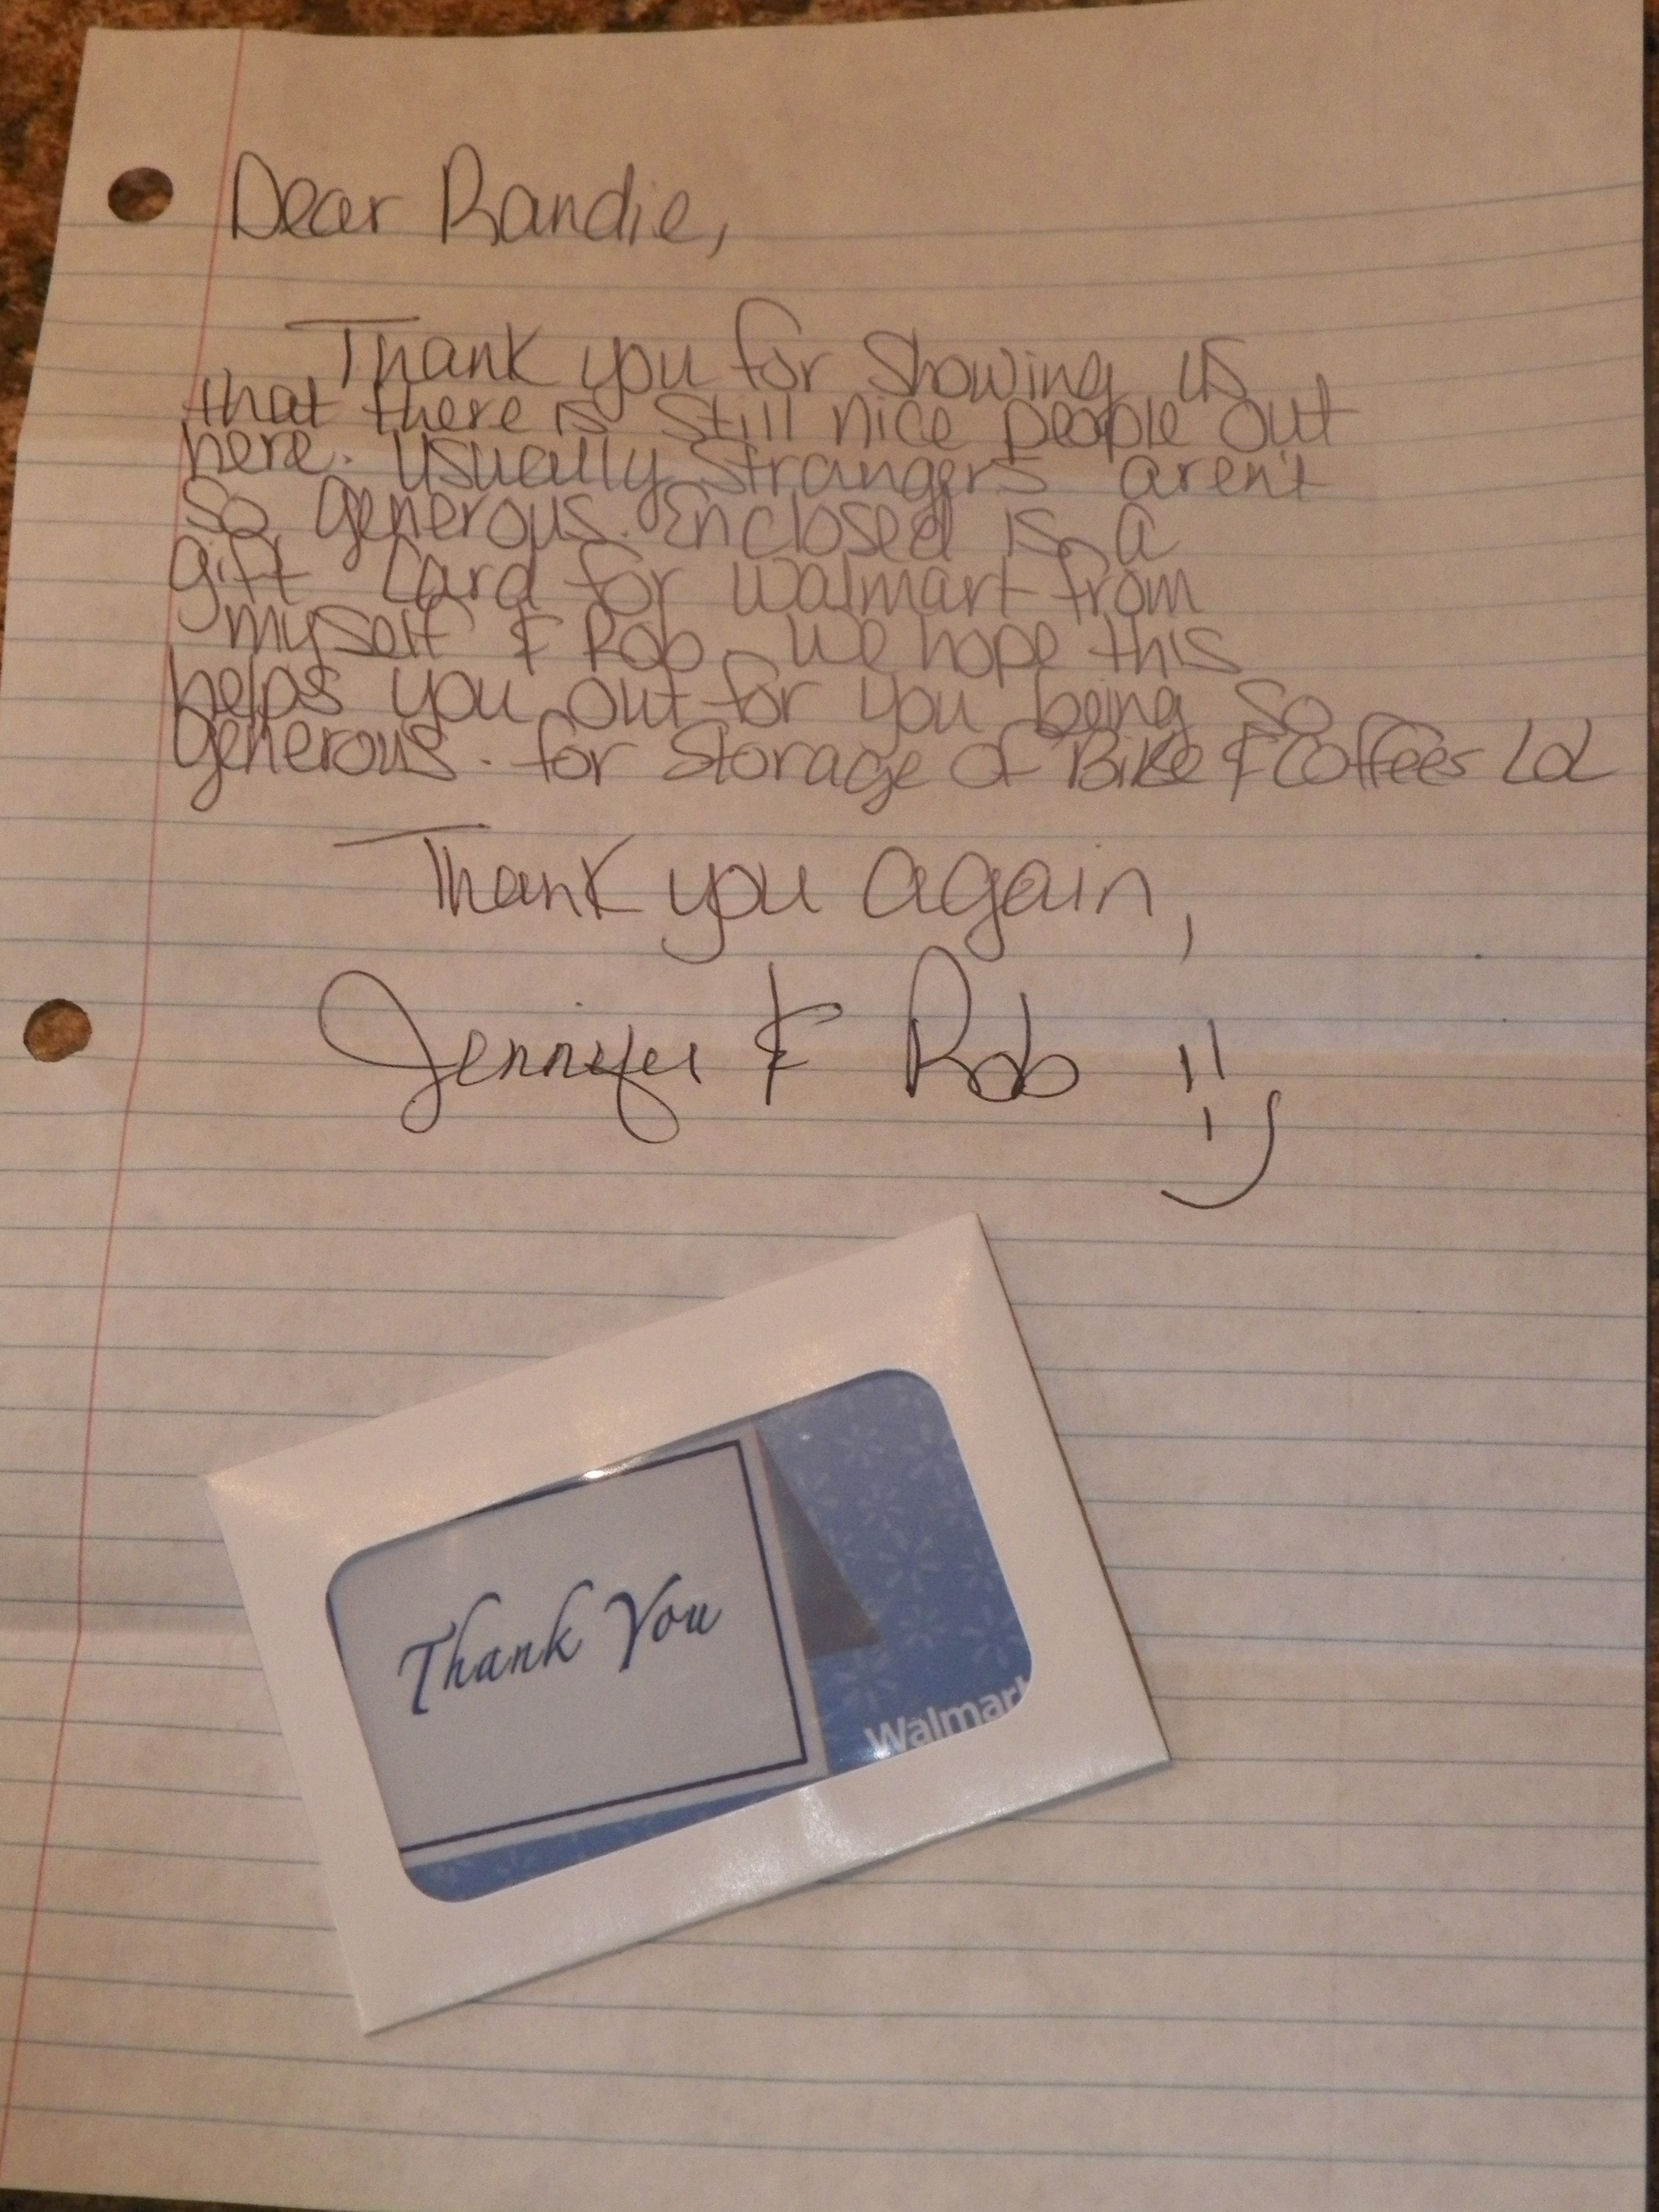 Dear Randie,
Thank you for showing us
that there is still nice people out
here. Usually strangers aren't
so generous. Enclosed is a
gift card for walmart from
myself & Rob. We hope this
helps you out for you being so
generous. for storage of Bike & Coffees LOL
Thank you again,
Jennifer & Rob :)
Thank You
Walmart